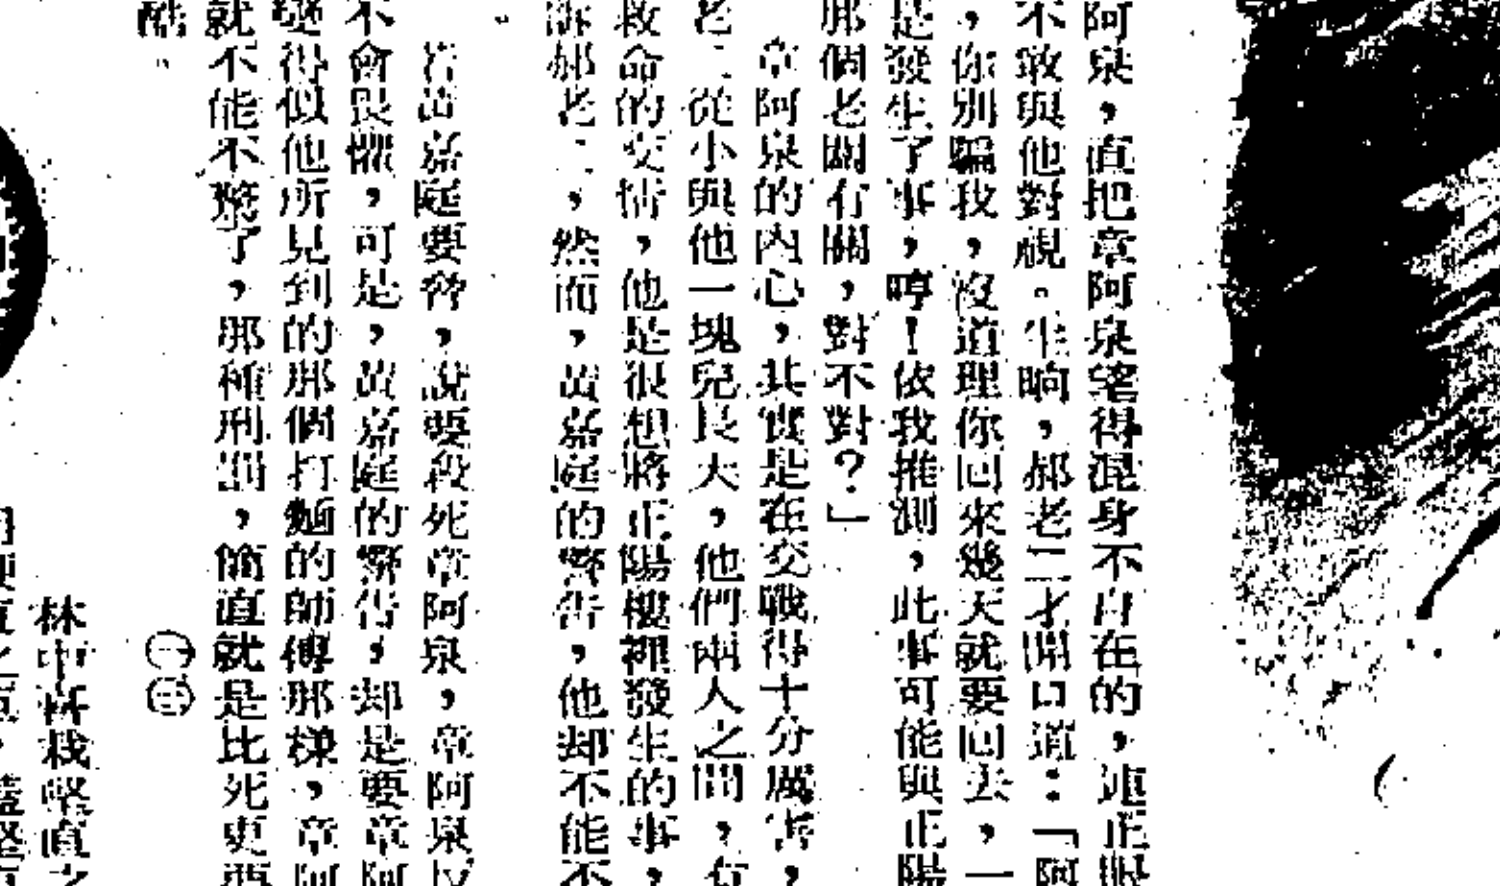 阿泉，直把章阿泉望得混身不自在的，連正眼
不敢與他對視。半晌，郝老二才開口道：「阿
，你別騙我，沒道理你回來幾天就要回去，一
是發生了事，哼！依我推測，此事可能與正陽
那個老闆有關，對不對？」
章阿泉的內心，其實是在交戰得十分厲害，
老二從小與他一塊兒長大，他們兩人之間，有
救命的交情，他是很想將正陽樓裡發生的事，
訴郝老二，然而，黃嘉庭的警告，他却不能不
。
若黃嘉庭要脅，說要殺死章阿泉，章阿泉反
不會畏懼，可是，黃嘉庭的警告，却是要章阿
變得似他所見到的那個打麵的師傅那樣，章阿
就不能不考慮了，那種刑罰，簡直就是比死更要
酷。
㊀㊂
林中喬栽堅直之